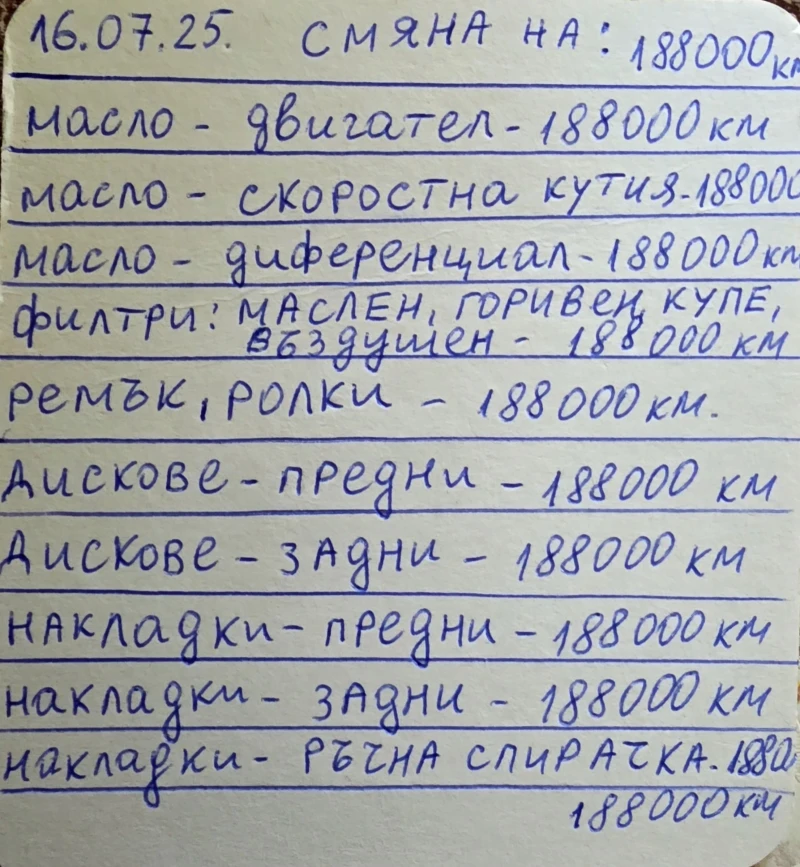 16.07.25. СМЯНА НА: 188000км
масло - двигател - 188000 км
масло - скоростна кутия - 188000
масло - диференциал - 188000 км
филтри: МАСЛЕН, ГОРИВЕН, КУПЕ,
въздушен - 188000 км
РЕМЪК, РОЛКИ - 188000 км.
Дискове - предни - 188000 км
Дискове - задни - 188000 км
накладки - предни - 188000 км
накладки - задни - 188000 км
накладки - РЪЧНА СПИРАЧКА. 1880
188000 км